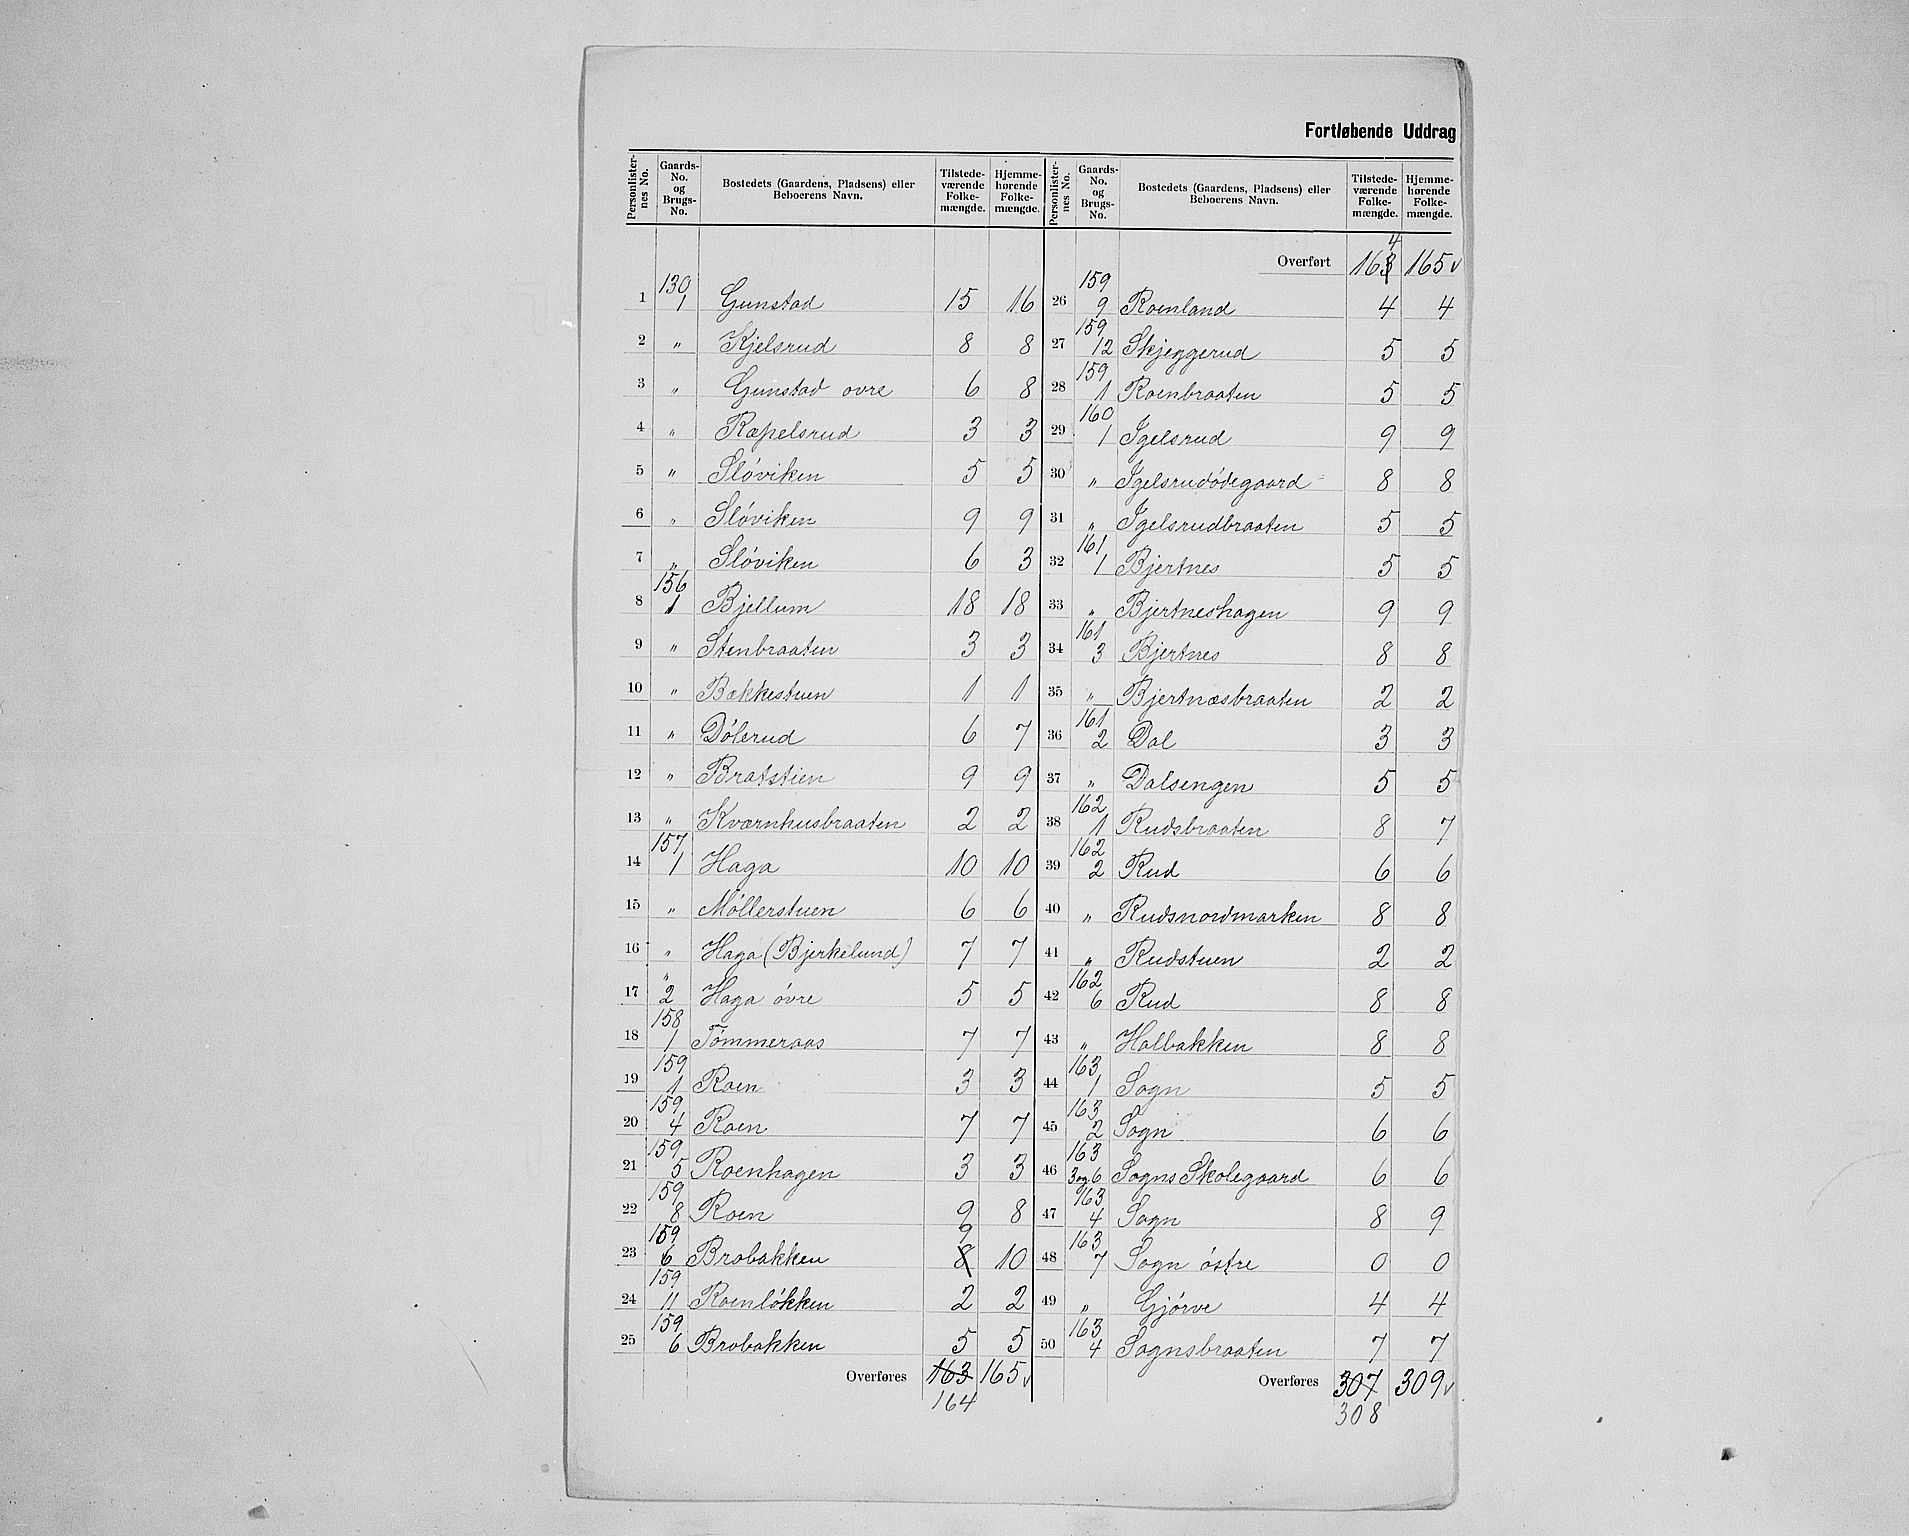 Fortløbende Uddrag
Personlisternes No. | Gaards-No. og Brugs-No. | Bostedets (Gaardens, Pladsens) eller Beboerens Navn. | Tilstedeværende Folkemængde. | Hjemmehørende Folkemængde.
1 | 130 1 | Gunstad | 15 | 16
2 | " | Kjelsrud | 8 | 8
3 | " | Gunstad ovre | 6 | 8
4 | " | Ræpelsrud | 3 | 3
5 | " | Sløviken | 5 | 5
6 | " | Sløviken | 9 | 9
7 | " | Sløviken | 6 | 3
8 | 156 1 | Bjellum | 18 | 18
9 | " | Stenbraaten | 3 | 3
10 | " | Bækkestuen | 1 | 1
11 | " | Dølerud | 6 | 7
12 | " | Bratstien | 9 | 9
13 | " | Kværnhusbraaten | 2 | 2
14 | 157 1 | Haga | 10 | 10
15 | " | Møllerstuen | 6 | 6
16 | " | Haga (Bjerkelund) | 7 | 7
17 | " 2 | Haga øvre | 5 | 5
18 | 158 1 | Tømmeraas | 7 | 7
19 | 159 1 | Roen | 3 | 3
20 | 159 4 | Roen | 7 | 7
21 | 159 5 | Roenhagen | 3 | 3
22 | 159 8 | Roen | 9 | 8
23 | 159 6 | Brobakken | 8 9 | 10
24 | 159 11 | Roenløkken | 2 | 2
25 | 159 6 | Brobakken | 5 | 5
Overføres | 163 | 165 v
164
Personlisternes No. | Gaards-No. og Brugs-No. | Bostedets (Gaardens, Pladsens) eller Beboerens Navn. | Tilstedeværende Folkemængde. | Hjemmehørende Folkemængde.
Overført | 163 4 | 165 v
26 | 159 9 | Roenland | 4 | 4
27 | 159 12 | Skjeggerud | 5 | 5
28 | 159 1 | Roenbraaten | 5 | 5
29 | 160 1 | Igelsrud | 9 | 9
30 | " | Igelsrudødegaard | 8 | 8
31 | " | Igelsrudbraaten | 5 | 5
32 | 161 1 | Bjertnes | 5 | 5
33 | " | Bjertneshagen | 9 | 9
34 | 161 3 | Bjertnes | 8 | 8
35 | " | Bjertnæsbraaten | 2 | 2
36 | 161 2 | Dal | 3 | 3
37 | " | Dalsengen | 5 | 5
38 | 162 1 | Rudsbraaten | 8 | 7
39 | 162 2 | Rud | 6 | 6
40 | " | Rudsnordmarken | 8 | 8
41 | " | Rudstuen | 2 | 2
42 | 162 6 | Rud | 8 | 8
43 | " | Holbakken | 8 | 8
44 | 163 1 | Sogn | 5 | 5
45 | 163 2 | Sogn | 6 | 6
46 | 163 3 og 6 | Sogns Skolegaard | 6 | 6
47 | 163 4 | Sogn | 8 | 9
48 | 163 7 | Sogn østre | 0 | 0
49 | " | Gjørve | 4 | 4
50 | 163 4 | Sognsbraaten | 7 | 7
Overføres | 307 | 309 v
308